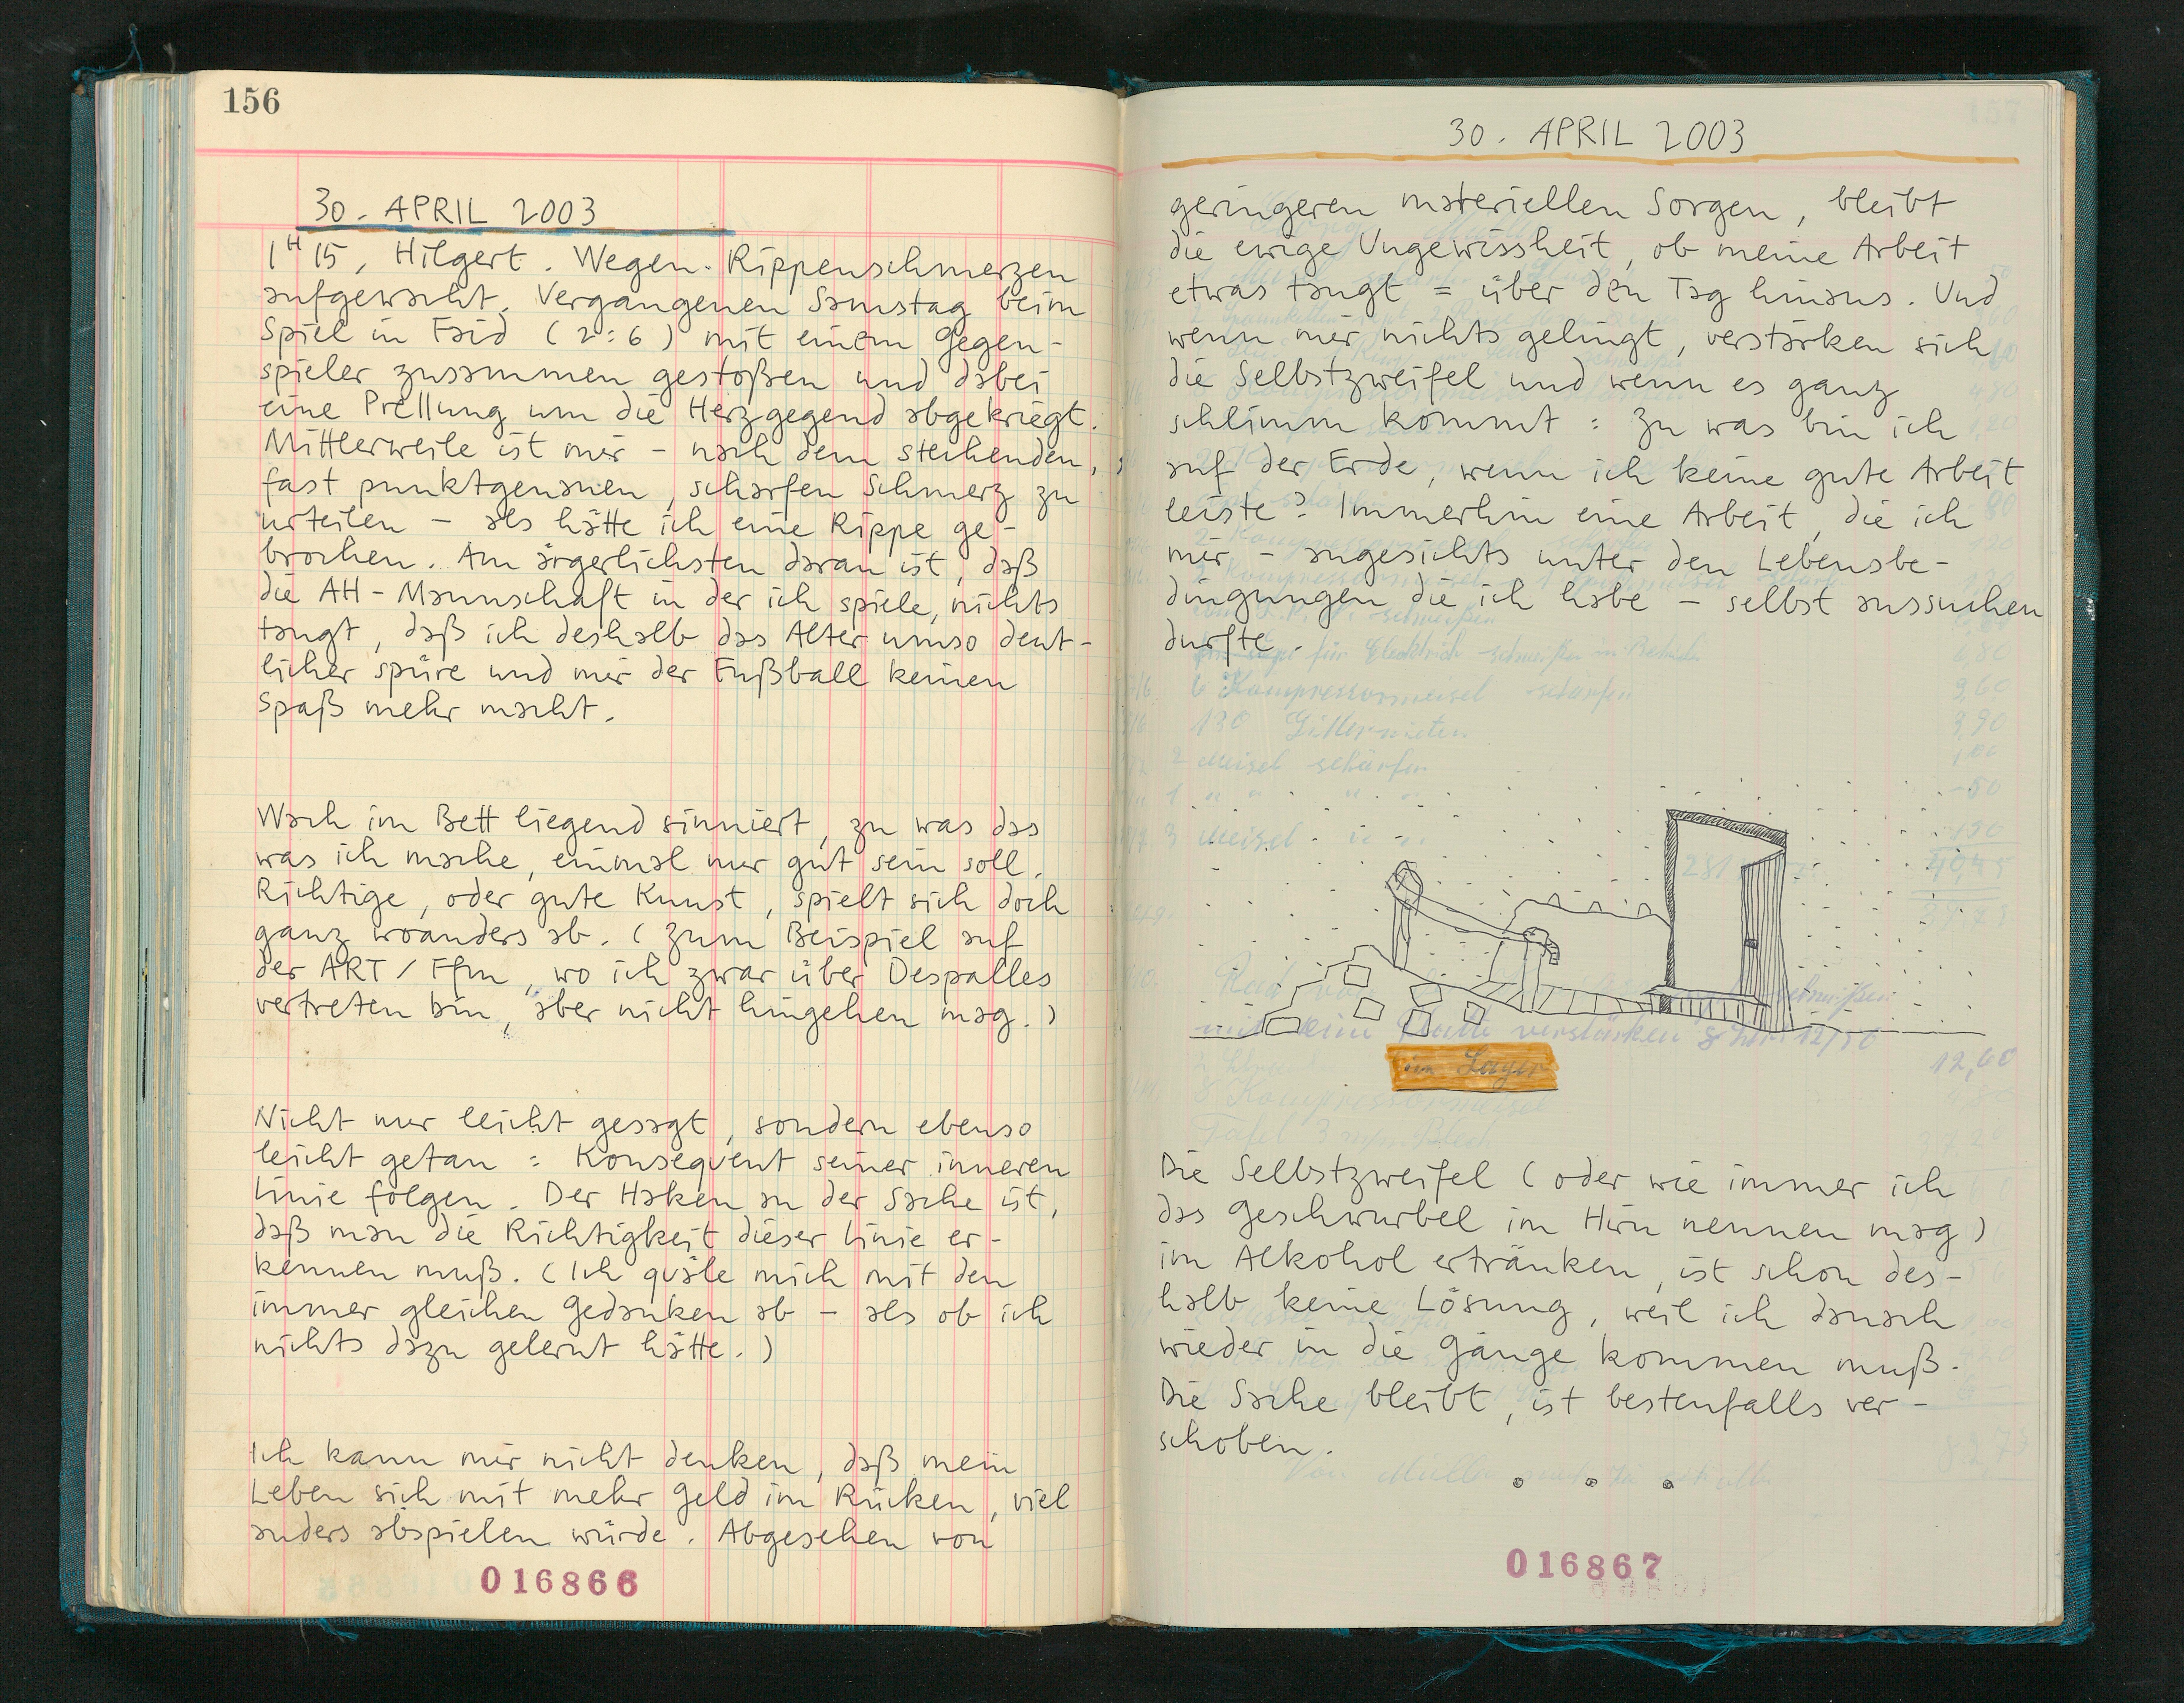 156
30. APRIL 2003
1H15, Hilgert. Wegen Rippenschmerzen
aufgewacht. Vergangenen Samstag beim
Spiel in Faid (2:6) mit einem Gegen-
spieler zusammen gestoßen und dabei
eine Prellung um die Herzgegend abgekriegt.
Mittlerweile ist mir - nach dem stechenden,
fast punktgenauen, scharfen Schmerz zu
urteilen - als hätte ich eine Rippe ge-
brochen. Am ärgerlichsten daran ist, daß
die AH-Mannschaft in der ich spiele, nichts
taugt, daß ich deshalb das Alter umso deut-
licher spüre und mir der Fußball keinen
Spaß mehr macht.
Wach im Bett liegend sinniert, zu was das
was ich mache, einmal nur gut sein soll.
Richtige, oder gute Kunst, spielt sich doch
ganz woanders ab. (Zum Beispiel auf
der ART/Ffm, wo ich zwar über Despalles
vertreten bin, aber nicht hingehen mag.)
Nicht nur leicht gesagt, sondern ebenso
leicht getan: Konsequent seiner inneren
Linie folgen. Der Haken an der Sache ist,
daß man die Richtigkeit dieser Linie er-
kennen muß. (Ich quäle mich mit den
immer gleichen Gedanken ab - als ob ich
nichts dazu gelernt hätte.)
Ich kann mir nicht denken, daß mein
Leben sich mit mehr Geld im Rücken, viel
anders abspielen würde. Abgesehen von
016866
157
30. APRIL 2003
geringeren materiellen Sorgen, bleibt
die ewige Ungewissheit, ob meine Arbeit
etwas taugt = über den Tag hinaus. Und
wenn mir nichts gelingt, verstärken sich
die Selbstzweifel und wenn es ganz
schlimm kommt: Zu was bin ich
auf der Erde, wenn ich keine gute Arbeit
leiste? Immerhin eine Arbeit, die ich
mir - angesichts unter den Lebensbe-
dingungen die ich habe - selbst aussuchen
durfte.
6 Kompressormeisel schärfen 9,60
130 Gitternieten 3,90
2 Meisel schärfen 1,00
3 Meisel
verstärken
12,60
im Lager
Die Selbstzweifel (oder wie immer ich
das Geschwurbel im Hirn nennen mag)
im Alkohol ertränken, ist schon des-
halb keine Lösung, weil ich danach
wieder in die Gänge kommen muß.
Die Sache bleibt, ist bestenfalls ver-
schoben.
016867